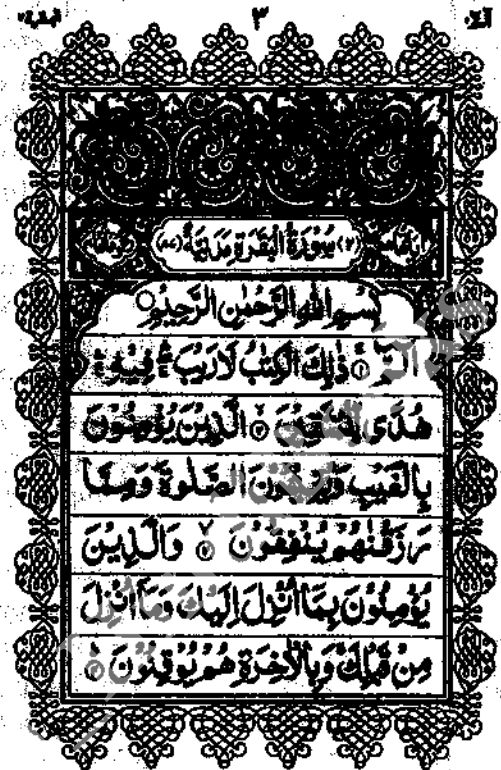 البقرة ٢ ٣ آلم ١
(٢) سُوْرَةُ الْبَقَرَةِ مَدَنِيَّةٌ (٨٧)
بِسْمِ اللّٰهِ الرَّحْمٰنِ الرَّحِيْمِ
الٓمّٓ ١ ذٰلِكَ الْكِتٰبُ لَا رَيْبَ ۛ فِيْهِ ۛ
هُدًى لِّلْمُتَّقِيْنَ ٢ الَّذِيْنَ يُؤْمِنُوْنَ
بِالْغَيْبِ وَيُقِيْمُوْنَ الصَّلٰوةَ وَمِمَّا
رَزَقْنٰهُمْ يُنْفِقُوْنَ ٣ وَالَّذِيْنَ
يُؤْمِنُوْنَ بِمَآ اُنْزِلَ اِلَيْكَ وَمَآ اُنْزِلَ
مِنْ قَبْلِكَ وَبِالْاٰخِرَةِ هُمْ يُوْقِنُوْنَ ٤